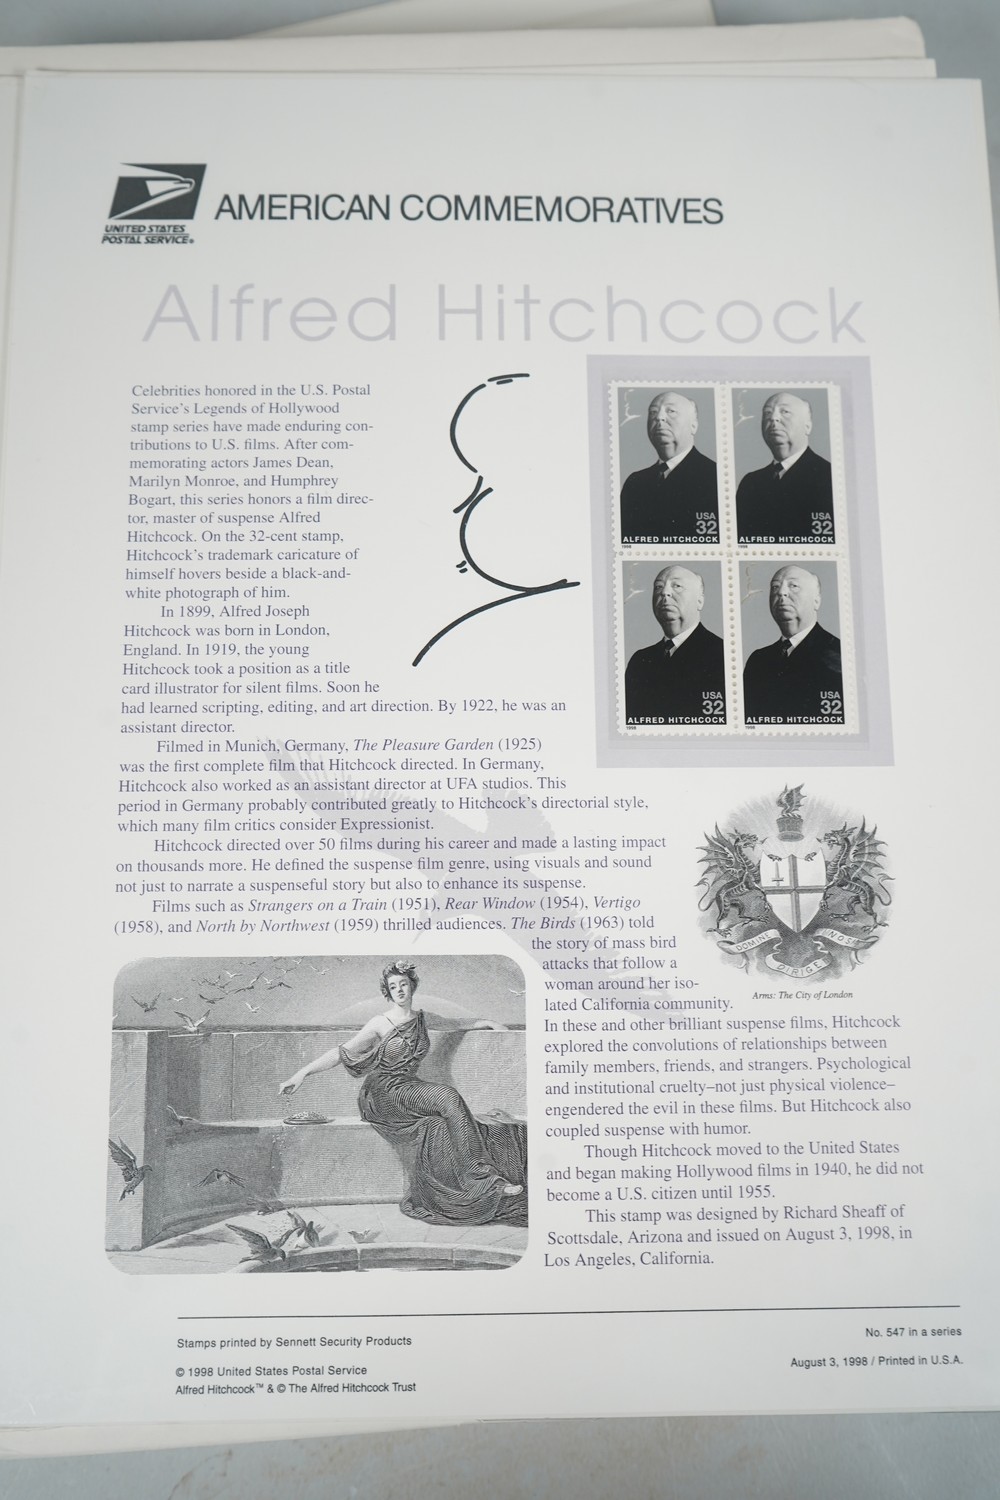 UNITED STATES
POSTAL SERVICE®
AMERICAN COMMEMORATIVES
Alfred Hitchcock
Celebrities honored in the U.S. Postal
Service's Legends of Hollywood
stamp series have made enduring con-
tributions to U.S. films. After com-
memorating actors James Dean,
Marilyn Monroe, and Humphrey
Bogart, this series honors a film direc-
tor, master of suspense Alfred
Hitchcock. On the 32-cent stamp,
Hitchcock's trademark caricature of
himself hovers beside a black-and-
white photograph of him.
In 1899, Alfred Joseph
Hitchcock was born in London,
England. In 1919, the young
Hitchcock took a position as a title
card illustrator for silent films. Soon he
had learned scripting, editing, and art direction. By 1922, he was an
assistant director.
Filmed in Munich, Germany, The Pleasure Garden (1925)
was the first complete film that Hitchcock directed. In Germany,
Hitchcock also worked as an assistant director at UFA studios. This
period in Germany probably contributed greatly to Hitchcock's directorial style,
which many film critics consider Expressionist.
Hitchcock directed over 50 films during his career and made a lasting impact
on thousands more. He defined the suspense film genre, using visuals and sound
not just to narrate a suspenseful story but also to enhance its suspense.
Films such as Strangers on a Train (1951), Rear Window (1954), Vertigo
(1958), and North by Northwest (1959) thrilled audiences. The Birds (1963) told
the story of mass bird
attacks that follow a
woman around her iso-
lated California community.
In these and other brilliant suspense films, Hitchcock
explored the convolutions of relationships between
family members, friends, and strangers. Psychological
and institutional cruelty–not just physical violence–
engendered the evil in these films. But Hitchcock also
coupled suspense with humor.
Though Hitchcock moved to the United States
and began making Hollywood films in 1940, he did not
become a U.S. citizen until 1955.
This stamp was designed by Richard Sheaff of
Scottsdale, Arizona and issued on August 3, 1998, in
Los Angeles, California.
USA
32
ALFRED HITCHCOCK
1998
USA
32
ALFRED HITCHCOCK
1998
USA
32
ALFRED HITCHCOCK
1998
USA
32
ALFRED HITCHCOCK
1998
DOMINE DIRIGE NOS
Arms: The City of London
Stamps printed by Sennett Security Products
© 1998 United States Postal Service
Alfred Hitchcock™ & © The Alfred Hitchcock Trust
No. 547 in a series
August 3, 1998 / Printed in U.S.A.